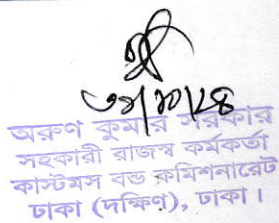 অরুণ কুমার সরকার
সহকারী রাজস্ব কর্মকর্তা
কাস্টমস বন্ড কমিশনারেট
ঢাকা (দক্ষিণ), ঢাকা।